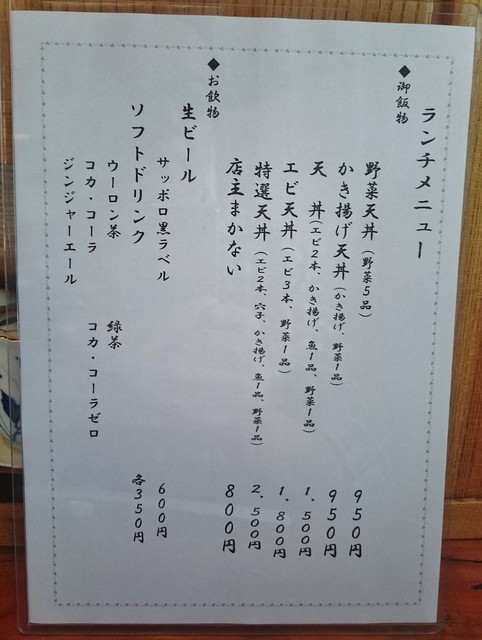 ランチメニュー
◆御飯物
野菜天丼(野菜5品) 950円
かき揚げ天丼(かき揚げ、野菜1品) 950円
天 丼(エビ2本、かき揚げ、魚1品、野菜1品) 1,500円
エビ天丼(エビ3本、野菜1品) 1,800円
特選天丼(エビ2本、穴子、かき揚げ、魚1品、野菜1品) 2,500円
店主まかない 800円
◆お飲物
生ビール
サッポロ黒ラベル 600円
ソフトドリンク 各350円
ウーロン茶 緑茶
コカ・コーラ コカ・コーラゼロ
ジンジャーエール